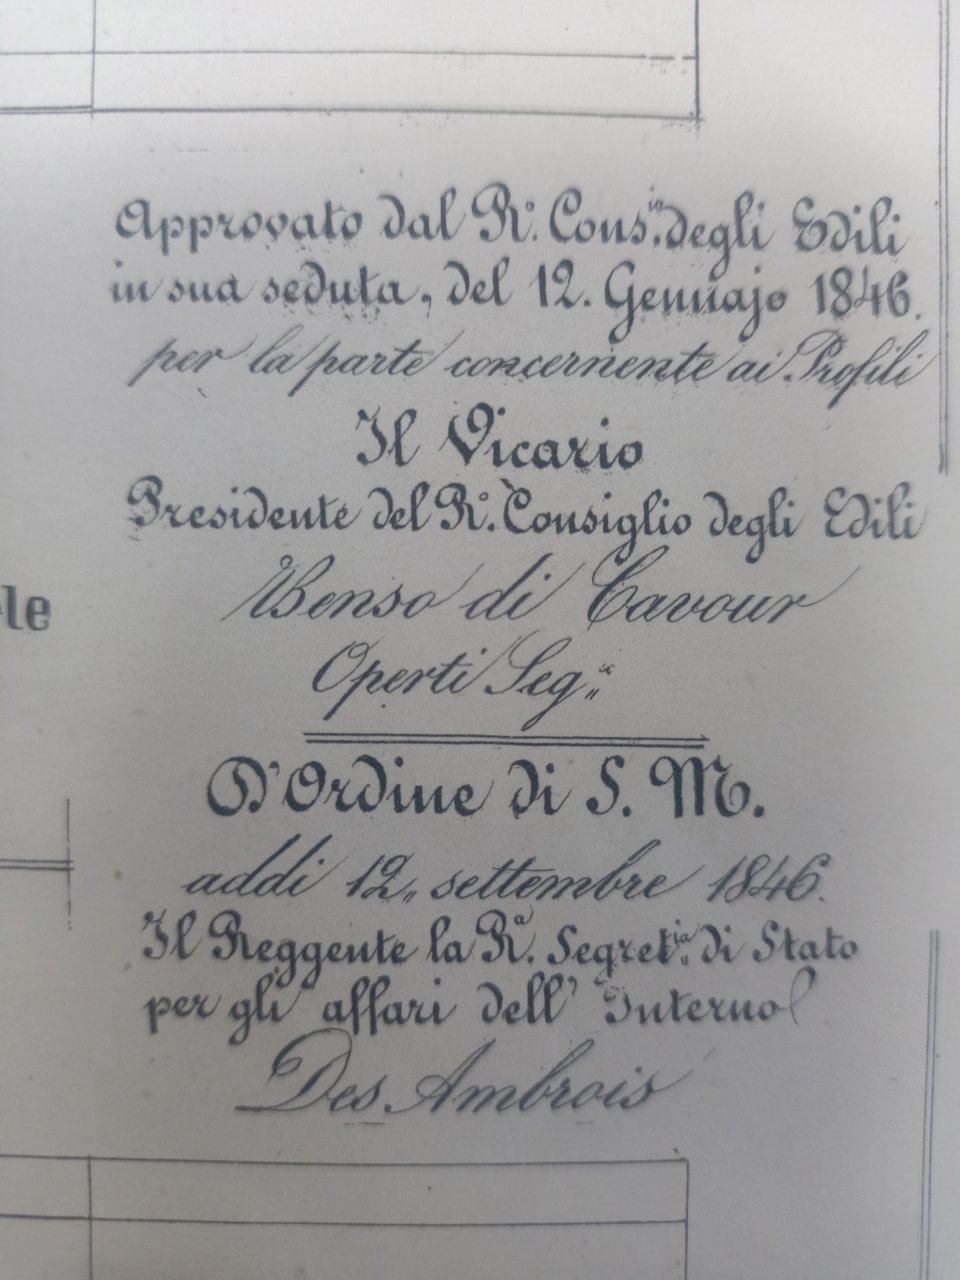 Approvato dal R.º Cons.io degli Edili
in sua seduta, del 12. Gennajo 1846.
per la parte concernente ai Profili
Il Vicario
Presidente del R.º Consiglio degli Edili
Benso di Cavour
le
Operti Seg.
D'Ordine di S. M.
addi 12 settembre 1846.
Il Reggente la R.a Segret.ia di Stato
per gli affari dell' Interno
Des Ambrois